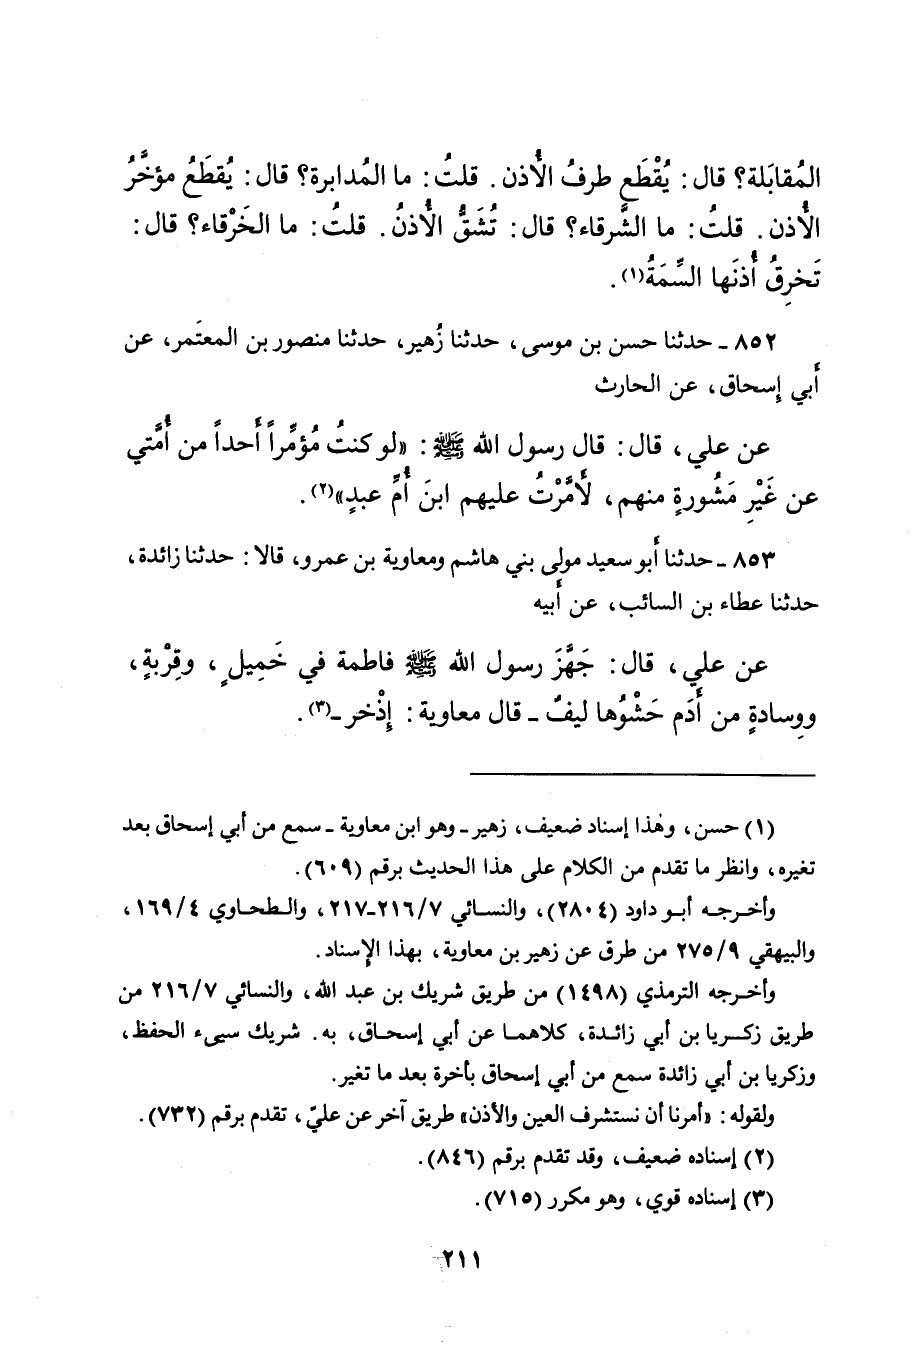 المُقابَلة؟ قال: يُقْطَع طرفُ الأُذن. قلتُ: ما المُدابرة؟ قال: يُقطَعُ مؤخَّرُ
الأُذن. قلتُ: ما الشَّرقاء؟ قال: تُشَقُّ الأُذنُ. قلتُ: ما الخَرْقاء؟ قال:
تَخرِقُ أُذنَها السِّمَةُ(١).
٨٥٢ ـ حدثنا حسن بن موسى، حدثنا زُهير، حدثنا منصور بن المعتَمر، عن
أَبي إِسحاق، عن الحارث
عن علي، قال: قال رسول الله ﷺ: «لو كنتُ مُؤمِّراً أَحداً من أُمَّتي
عن غَيْرِ مَشُورةٍ منهم، لَأَمَّرْتُ عليهم ابنَ أُمِّ عبدٍ»(٢).
٨٥٣ ـ حدثنا أَبو سعيد مولى بني هاشم ومعاوية بن عمرو، قالا: حدثنا زائدة،
حدثنا عطاء بن السائب، عن أَبيه
عن علي، قال: جَهَّزَ رسول الله ﷺ فاطمة في خَمِيلٍ، وقِرْبةٍ،
ووِسادةٍ من أَدَم حَشْوُها ليفٌ ـ قال معاوية: إِذْخر ـ(٣).
(١) حسن، وهٰذا إسناد ضعيف، زهير ـ وهو ابن معاوية ـ سمع من أبي إسحاق بعد
تغيره، وانظر ما تقدم من الكلام على هذا الحديث برقم (٦٠٩).
وأخرجه أبو داود (٢٨٠٤)، والنسائي ٢١٦/٧-٢١٧، والطحاوي ١٦٩/٤،
والبيهقي ٢٧٥/٩ من طرق عن زهير بن معاوية، بهذا الإسناد.
وأخرجه الترمذي (١٤٩٨) من طريق شريك بن عبد الله، والنسائي ٢١٦/٧ من
طريق زكريا بن أبي زائدة، كلاهما عن أبي إسحاق، به. شريك سيىء الحفظ،
وزكريا بن أبي زائدة سمع من أبي إسحاق بأخرة بعد ما تغير.
ولقوله: «أمرنا أن نستشرف العين والأذن» طريق آخر عن عليّ، تقدم برقم (٧٣٢).
(٢) إسناده ضعيف، وقد تقدم برقم (٨٤٦).
(٣) إسناده قوي، وهو مكرر (٧١٥).
٢١١